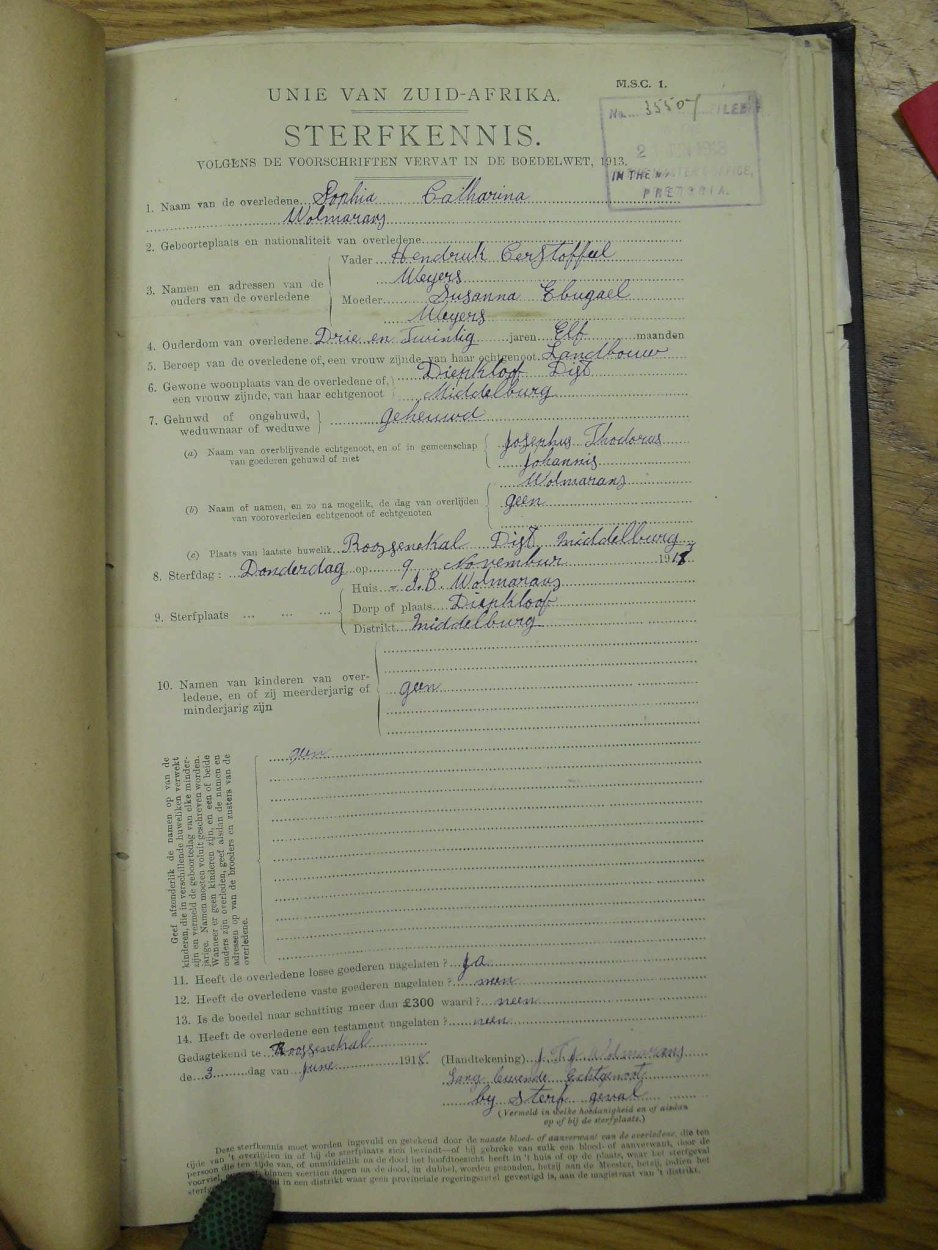 M.S.C. 1.
UNIE VAN ZUID-AFRIKA.
No. 3550 FILED
2 1913
IN THE MASTER'S OFFICE,
PRETORIA.
STERFKENNIS.
VOLGENS DE VOORSCHRIFTEN VERVAT IN DE BOEDELWET, 1913.
1. Naam van de overledene Sophia Catharina
Wolmarans
2. Geboorteplaats en nationaliteit van overledene
3. Namen en adressen van de ouders van de overledene
Vader Hendruk Cerstoffeel
Weyers
Moeder Susanna Ebugael
Weyers
4. Ouderdom van overledene Drie en Twintig jaren Elf maanden
5. Beroep van de overledene of, een vrouw zijnde, van haar echtgenoot Landbouw
6. Gewone woonplaats van de overledene of, een vrouw zijnde, van haar echtgenoot
Diepkloof Dist
Middelburg
7. Gehuwd of ongehuwd, weduwnaar of weduwe
geheuwd
(a) Naam van overblijvende echtgenoot, en of in gemeenschap van goederen gehuwd of niet
Josephus Thodorus
Johannis
Wolmarans
(b) Naam of namen, en zo na mogelik, de dag van overlijden van vooroverleden echtgenoot of echtgenoten
geen
(c) Plaats van laatste huwelik Roossenekal Dist Middelburg
8. Sterfdag: Donderdag op 9 Novembur 191
9. Sterfplaats ... ... ...
Huis - J. B. Wolmarans
Dorp of plaats Diepkloof
Distrikt Middelburg
10. Namen van kinderen van overledene, en of zij meerderjarig of minderjarig zijn
geen
Geef afzonderlik de namen op van de
kinderen, die in verschillende huweliken verwekt
zijn en vermeld de geboortedag van elke minder-
jarige. Namen moeten voluit geschreven worden.
Wanneer er geen kinderen zijn, en een of beide
ouders zijn overleden, geef alsdan de namen en
adressen op van de broeders en zusters van de
overledene.
geen
11. Heeft de overledene losse goederen nagelaten? Ja
12. Heeft de overledene vaste goederen nagelaten? neen
13. Is de boedel naar schatting meer dan £300 waard? neen
14. Heeft de overledene een testament nagelaten? neen
Gedagtekend te Roossenekal
de 3 dag van June 1918
(Handtekening) J. T. J. Wolmarans
Lang lewende Echtgenoot
by sterf geval
(Vermeld in welke hoedanigheid en of alsdan
op of bij de sterfplaats.)
Deze sterfkennis moet worden ingevuld en getekend door de naaste bloed- of aanverwant van de overledene, die ten
tijde van 't overlijden in of bij de sterfplaats zich bevindt—of bij gebreke van zulk een bloed- of aanverwant, door de
persoon die ten tijde van, of onmiddellik na de dood het hoofdtoezicht heeft in 't huis of op de plaats, waar het sterfgeval
voorviel, binnen veertien dagen na de dood, in dubbel, worden gezonden, hetzij aan de Meester, hetzij, indien het
sterfgeval in een distrikt waar geen provinciale regeringszetel gevestigd is, aan de magistraat van 't distrikt.